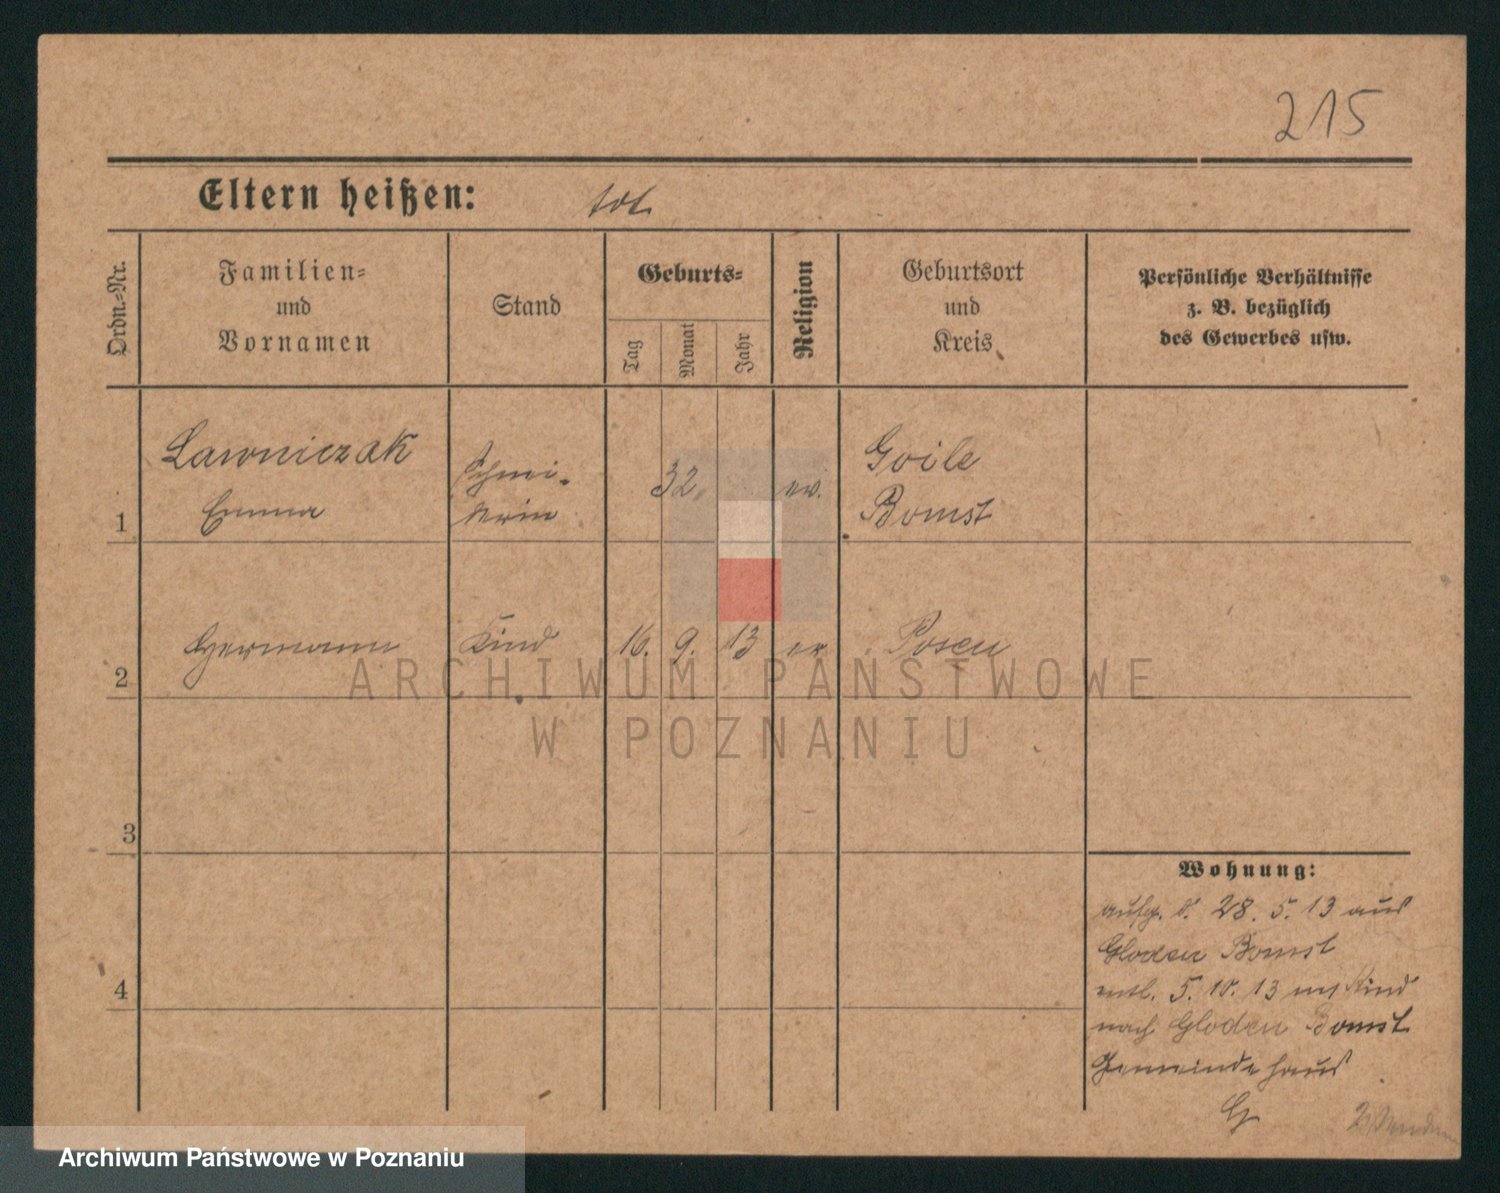 215
Eltern heißen: tot
Ordn.-Nr.
Familien-
und
Vornamen
Stand
Geburts-
Tag
Monat
Jahr
Religion
Geburtsort
und
Kreis
Persönliche Verhältnisse
z. B. bezüglich
des Gewerbes usw.
1
Lawniczak
Emma
32.
ev.
Goile
Bomst
2
Hermann
Kind
16. 9. 13
ev.
Posen
3
4
Wohnung:
28. 5. 13 aus
Gloden Bomst
entl. 5. 10. 13 mit Kind
nach Gloden Bomst
Gemeindehaus
ARCHIWUM PAŃSTWOWE
W POZNANIU
Archiwum Państwowe w Poznaniu